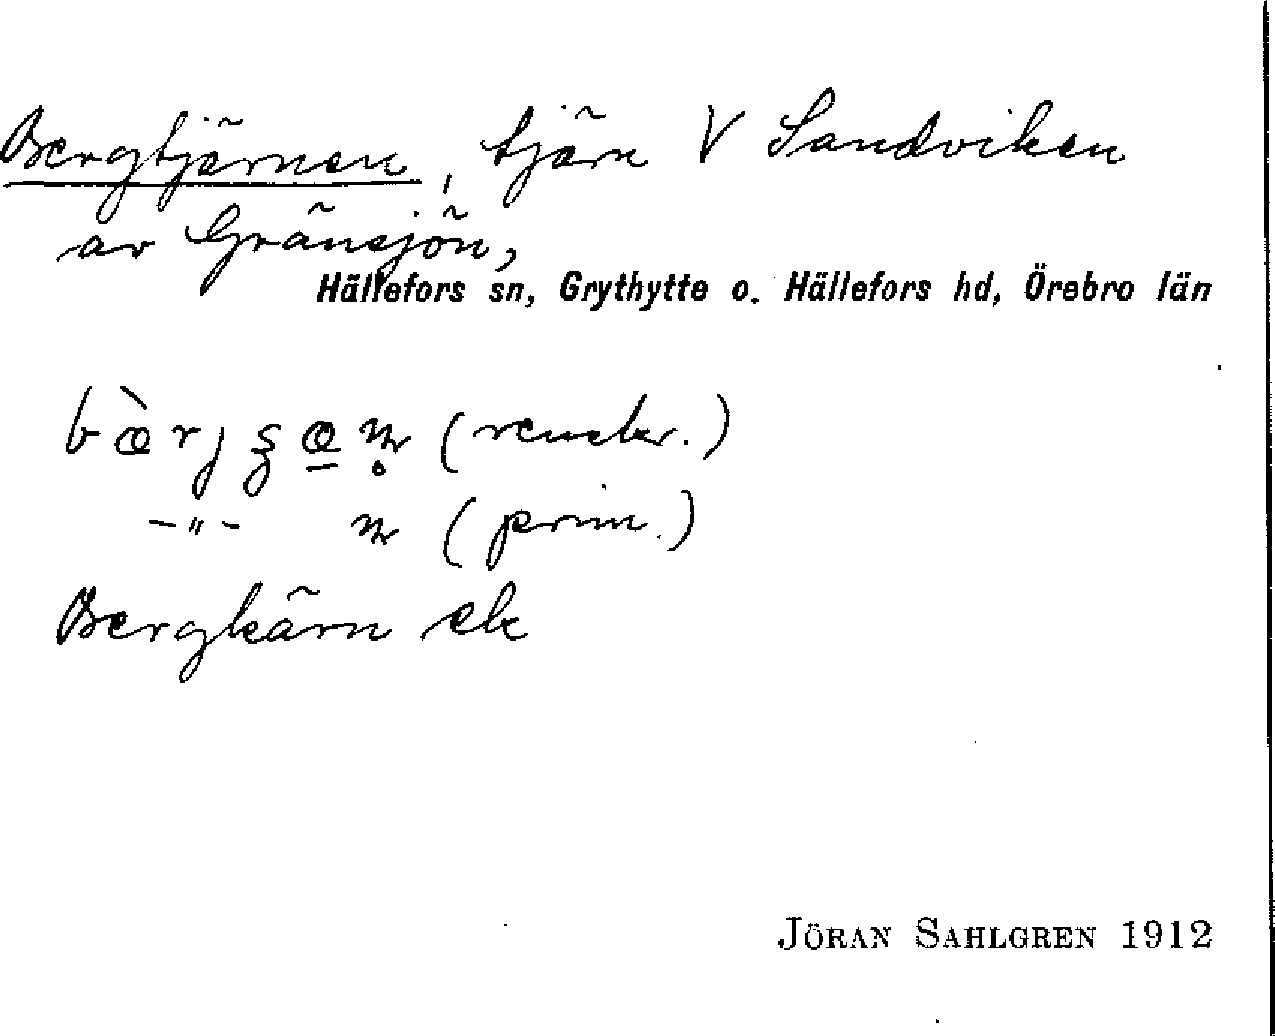 Bergtjärnen, tjärn V Sandviken
av Gränsjön,
Hällefors sn, Grythytte o. Hällefors hd, Örebro län
bæ̀rj ʂæ̱n̥ (renskr.)
-"- n (prim.)
Bergkärn ek
JÖRAN SAHLGREN 1912